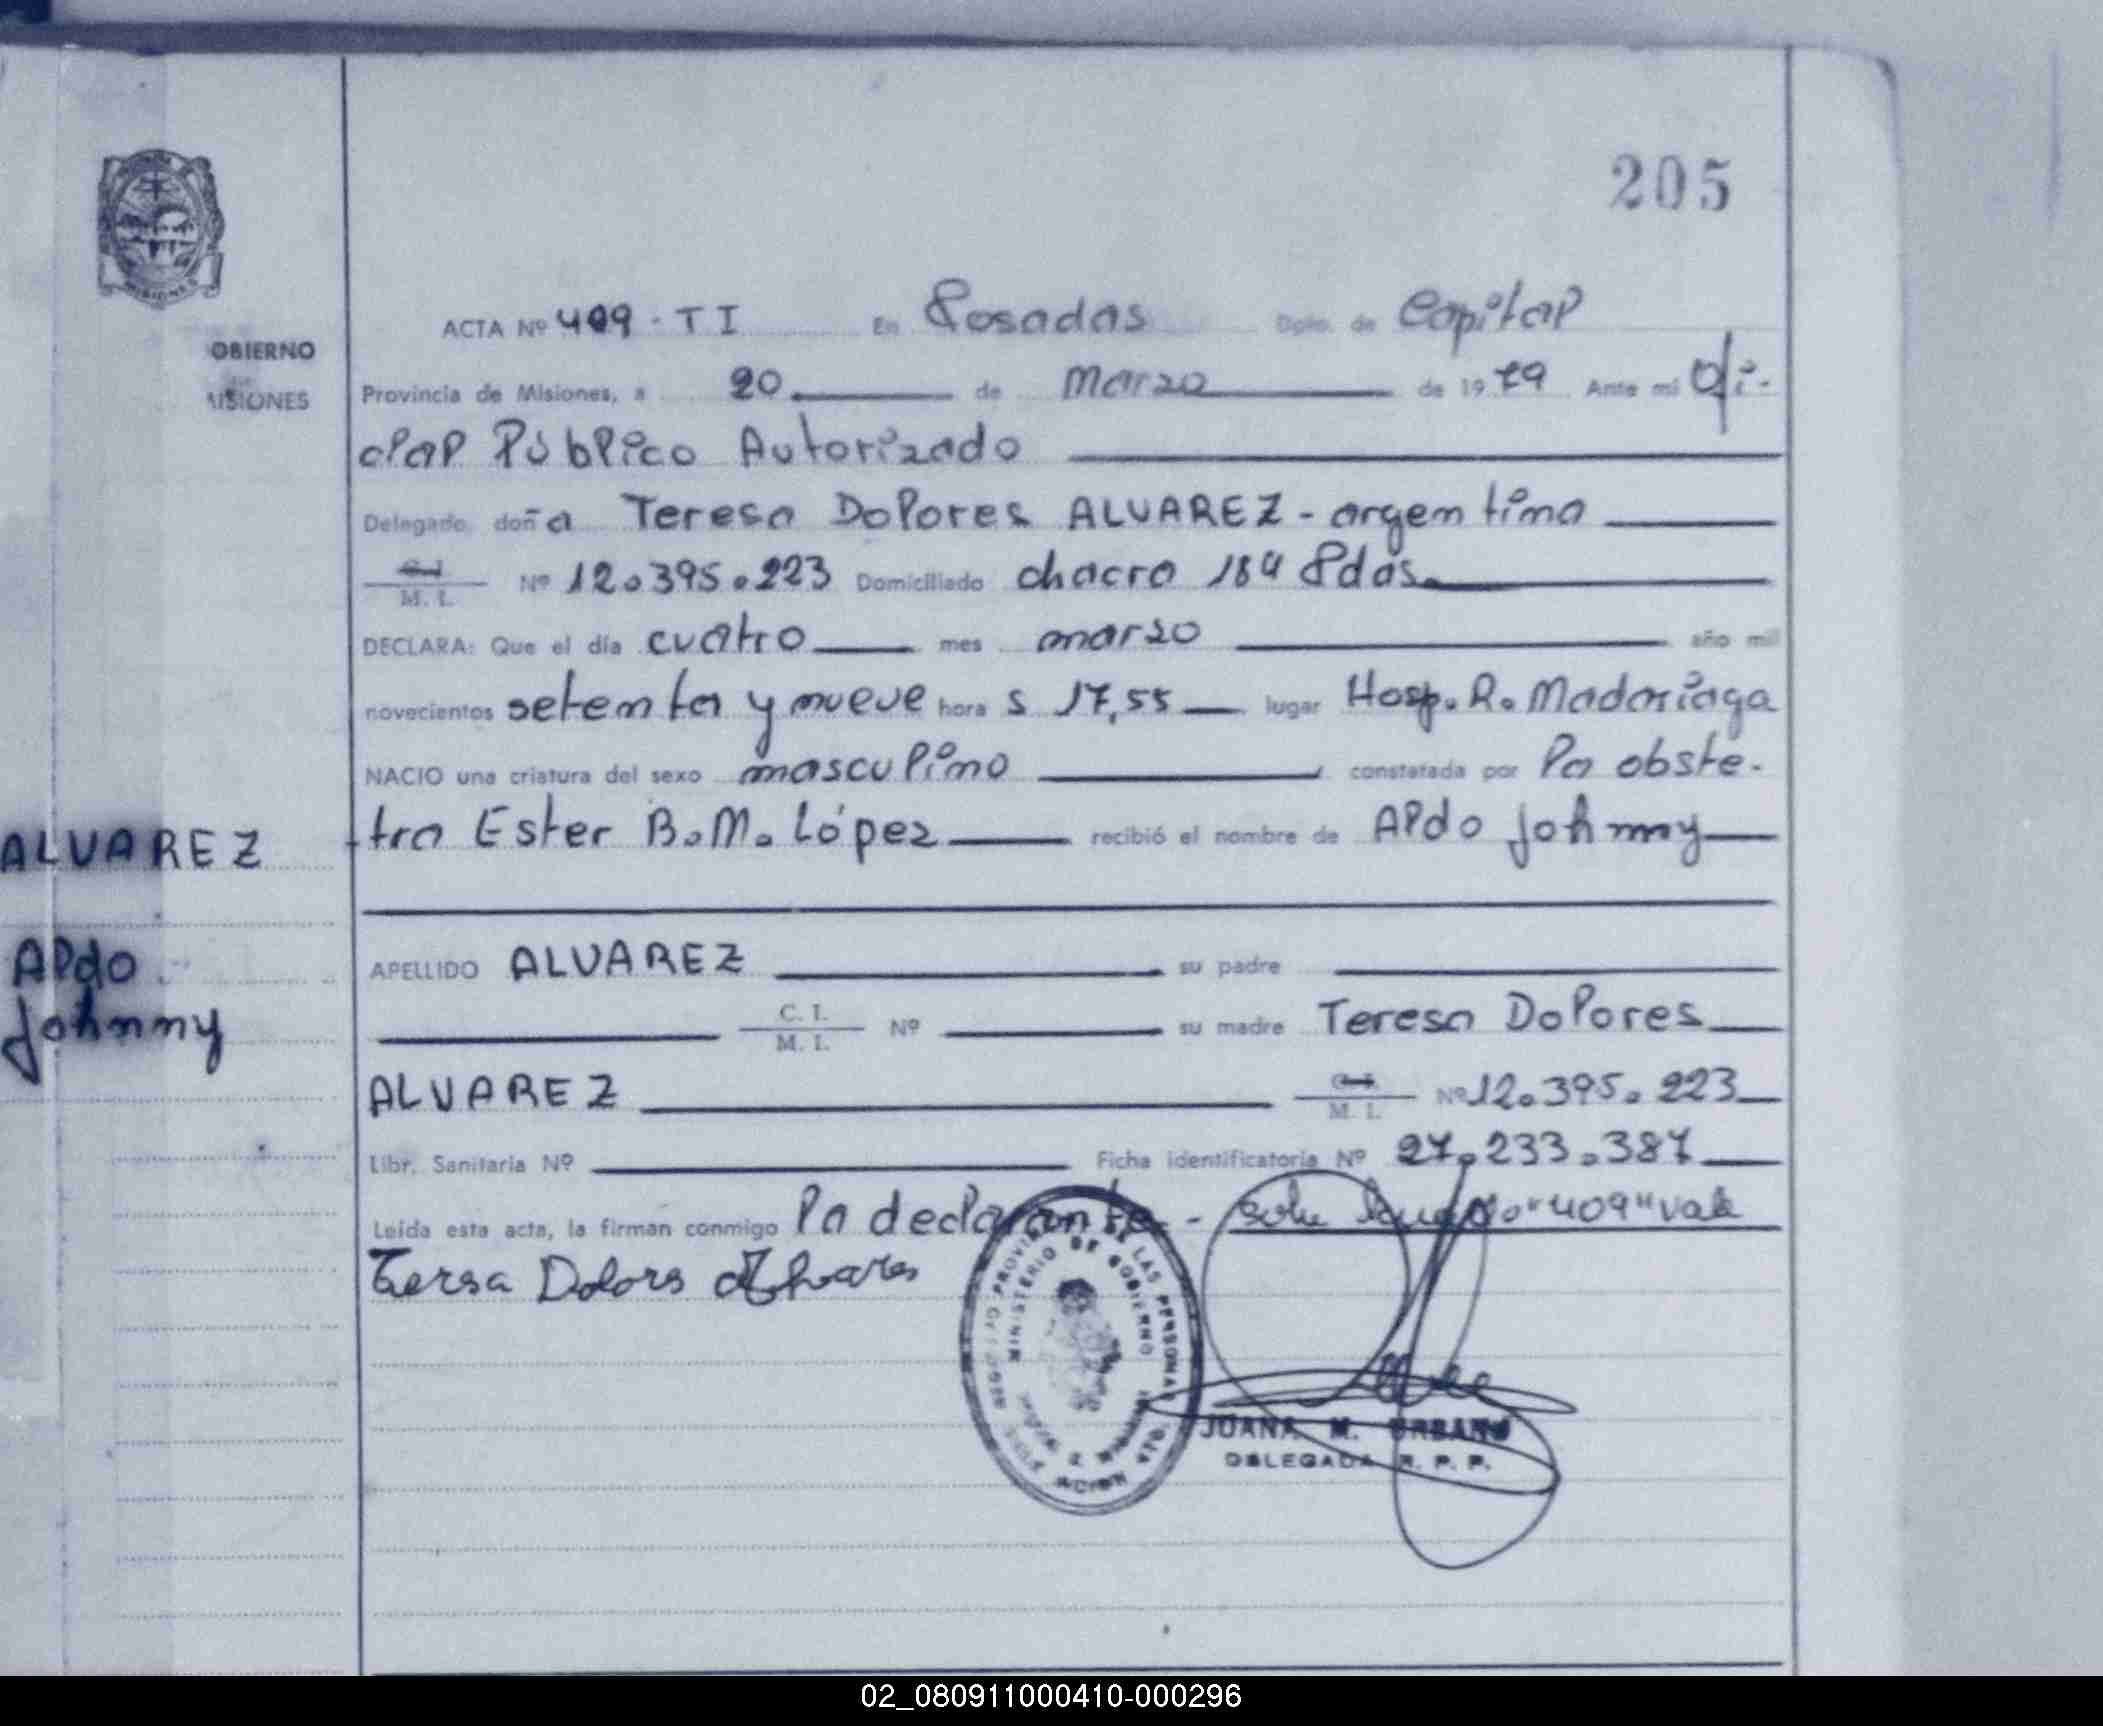 205
ACTA Nº 409 - T I En Posadas Dpto. de Capital
OBIERNO
Provincia de Misiones, a 20 de marzo de 1979 Ante mi Ofi-
MISIONES
cial Público Autorizado
Delegado doña Teresa Dolores ALVAREZ - argentina
C. I.
M. I.
Nº 12.395.223 Domiciliado chacra 184 Pdas.
DECLARA: Que el día cuatro mes marzo año mil
novecientos setenta y nueve hora s 17,55 lugar Hosp. R. Madariaga
NACIO una criatura del sexo masculino constatada por la obste-
ALVAREZ
tra Ester B. M. López recibió el nombre de Aldo Johnny
Aldo
Johnny
APELLIDO ALVAREZ su padre
C. I.
M. I.
Nº su madre Teresa Dolores
ALVAREZ
C. I.
M. I.
Nº 12.395.223
Libr. Sanitaria Nº Ficha identificatoria Nº 27.233.387
Leída esta acta, la firman conmigo la declarante - "409" vale
Tersa Dolors Alvares
MINISTERIO DE GOBIERNO
DE LAS PERSONAS
JUANA M. URBANO
DELEGADA R. P. P.
02_080911000410-000296